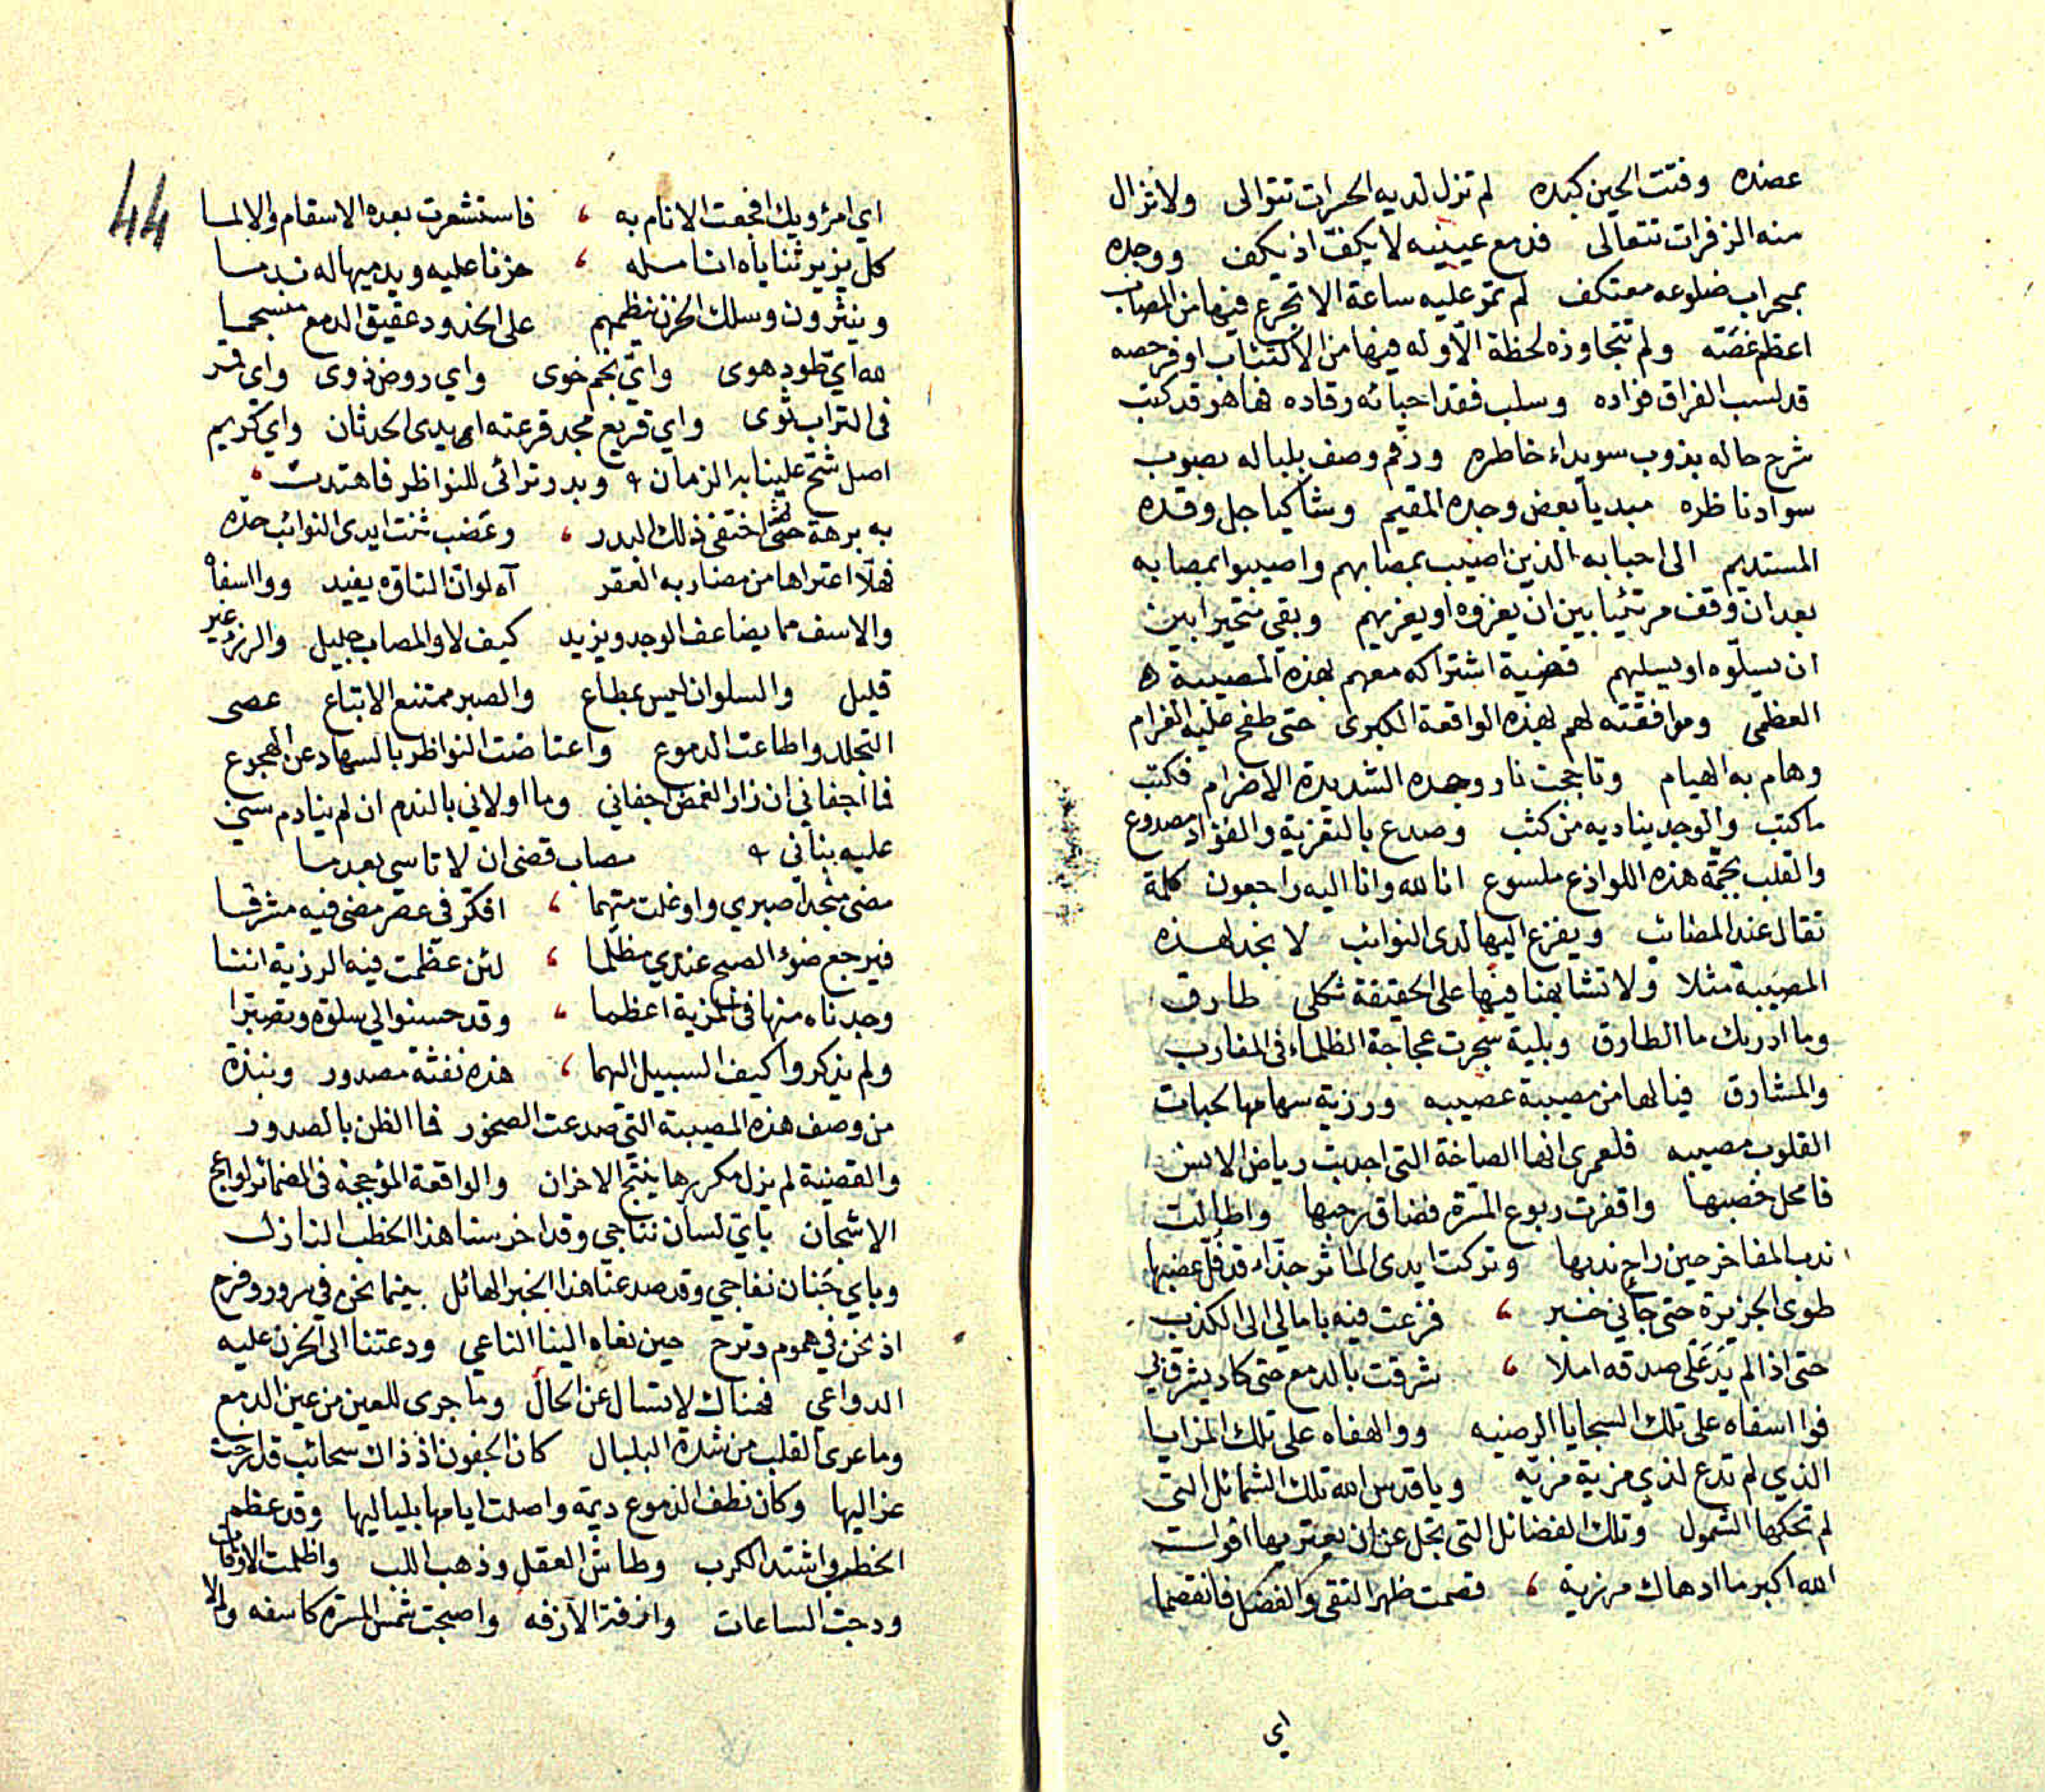 عضده وفتت الحين كبده لم تزل لديه الحسرات تتوالى ولا تزال
منه الزفرات تتعالى فدمع عينيه لا يكف اذ يكف ووجده
بمحراب ضلوعه معتكف لم تمر عليه ساعة الا تجرع فيها من المصاب
اعظم غصته ولم تتجاوزه لحظة الا وله فيها من الاكتئاب اوفر حصه
قد لسب الفراق فؤاده وسلب فقد احبائه رقاده فها هو قد كتب
شرح حاله بذوب سويداء خاطره ورقم وصف بلباله بصوب
سواد ناظره مبديا بعض وجده المقيم وشاكيا جل وقده
المستديم الى احبابه الذين اصيب بمصابهم واصيبوا بمصابه
بعد ان وقف مرتئيا بين ان يعزوه او يعزيهم وبقي متحيرا بين
ان يسلوه او يسليهم قضية اشتراكه معهم بهذه المصيبة
العظمى وموافقته لهم بهذه الواقعة الكبرى حتى طفح عليه الغرام
وهام به الهيام وتاججت نار وجده الشديدة الاضرام فكتب
ما كتب والوجد يناديه من كثب وصدع بالتعزية والفؤاد مصدوع
والقلب بحمة هذه اللواذع ملسوع انا لله وانا اليه راجعون كلمة
تقال عند المصائب ويفزع اليها لدى النوائب لا نجد لهذه
المصيبة مثلا ولا تشابهنا فيها على الحقيقة ثكلى طارق
وما ادريك ما الطارق وبلية سجرت عجاجة الظلماء في المغارب
والمشارق فيا لها من مصيبة عصيبه ورزية سهامها لحبات
القلوب مصيبه فلعمري انها الصاخة التي اجدبت رياض الانس
فامحل خصبها واقفرت ربوع المسرة فضاق رحبها واطالت
ندب المفاخر حين راح ندبها وتركت ايدى المآثر جذاء قد فل عضبها
طوى الجزيرة حتى جاني خبر ، فزعت فيه بامالي الى الكذب
حتى اذا لم يدع لي صدقه املا ، شرقت بالدمع حتى كاد يشرق بي
فوا اسفاه على تلك السجايا الرضيه ووالهفاه على تلك المزايا
الذي لم تدع لذي مزية مزيه ويا قدس الله تلك الشمائل التي
لم تحكها الشمول وتلك الفضائل التي تجل عن ان يعتريها افول
الله اكبر ما ادهاك مرزية ، قصمت ظهر التقى والفضل فانقصما
اي
44
اي امرؤ ويك افجعت الانام به ، فاستشعرت بعده الاسقام والالما
كل يزير ثناياه انامله ، حزنا عليه ويدميها له ندما
وينثرون وسلك الحزن ينظمهم على الخدود عقيق الدمع منسجما
لله اي طود هوى واي نجم خوى واي روض ذوى واي قمر
في التراب ثوى واي قريع مجد قرعته ايدى الحدثان واي كريم
اصل شح علينا به الزمان وبدر ترائى للنواظر فاهتدت
به برهة حتى اختفى ذلك البدر ، وعضب ثنت ايدى النوائب حده
فهلا اعتراها من مضاربه العقر آه لو ان التاوه يفيد ووا اسفاه
والاسف مما يضاعف الوجد ويزيد كيف لا والمصاب جليل والرزء غير
قليل والسلوان ليس بمطاع والصبر ممتنع الاتباع عصى
التجلد واطاعت الدموع واعتاضت النواظر بالسهاد عن الهجوع
فما اجفاني ان زار الغمض اجفاني وما اولاني بالندم ان لم ينادم سني
عليه بناني مصاب قضى ان لا تاسى بعدما
مضى منجدا صبري واوغلت متهما ، افكر في عصر مضى فيه مشرقا
فيرجع ضوء الصبح عندي مظلما ، لئن عظمت فيه الرزية اننا
وجدناه منها في المزية اعظما ، وقد حسنوا لي سلوة وتصبرا
ولم يذكروا كيف السبيل اليهما ، هذه نفثة مصدور ونبذة
من وصف هذه المصيبة التي صدعت الصخور فما الظن بالصدور
والقضية لم يزل مكررها ينتج الاحزان والواقعة المؤججة في الضمائر لواعج
الاشجان باي لسان نناجي وقد اخرسنا هذا الخطب النازل
وباي جنان نفاجي وقد صدعنا هذا الخبر الهائل بينما نحن في سرور وفرح
اذ نحن في هموم وترح حين نعاه الينا الناعي ودعتنا الى الحزن عليه
الدواعي فهناك لا تسال عن الحال وما جرى للعين من عين الدمع
وما عرى القلب من شدة البلبال كان الجفون اذ ذاك سحائب قد ارخت
عزاليها وكان نطف الدموع ديمة واصلت ايامها بلياليها وقد عظم
الخطب واشتد الكرب وطاش العقل وذهب اللب واظلمت الاوقات
ودجت الساعات وازفت الآزفه واصبحت شمس المسرة كاسفه